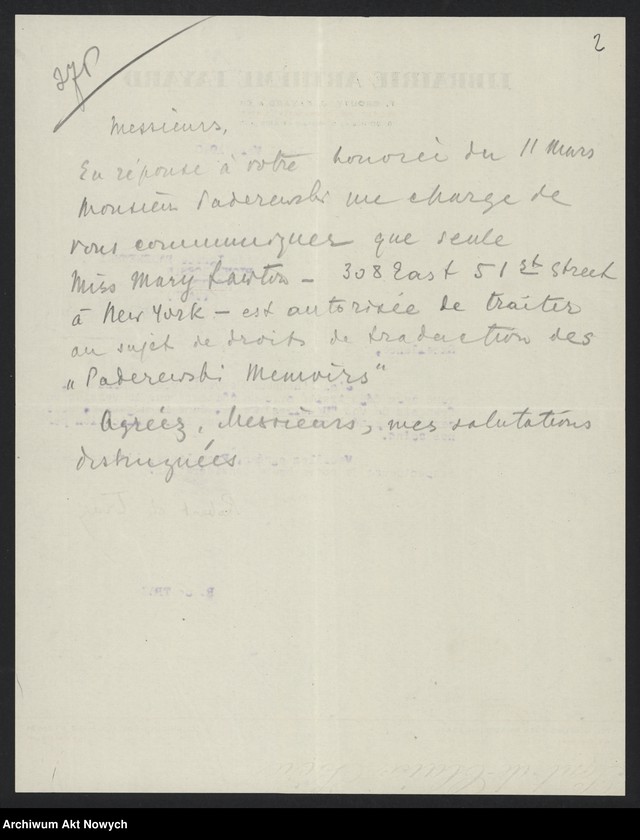 2
Messieurs,
En réponse à votre honorée du 11 Mars
Monsieur Paderewski me charge de
vous communiquer que seule
Miss Mary Lawton – 308 East 51 st Street
à New York – est autorisée de traiter
au sujet de droits de traduction des
„Paderewski Memoirs"
Agréez, Messieurs, mes salutations
distinguées
Archiwum Akt Nowych